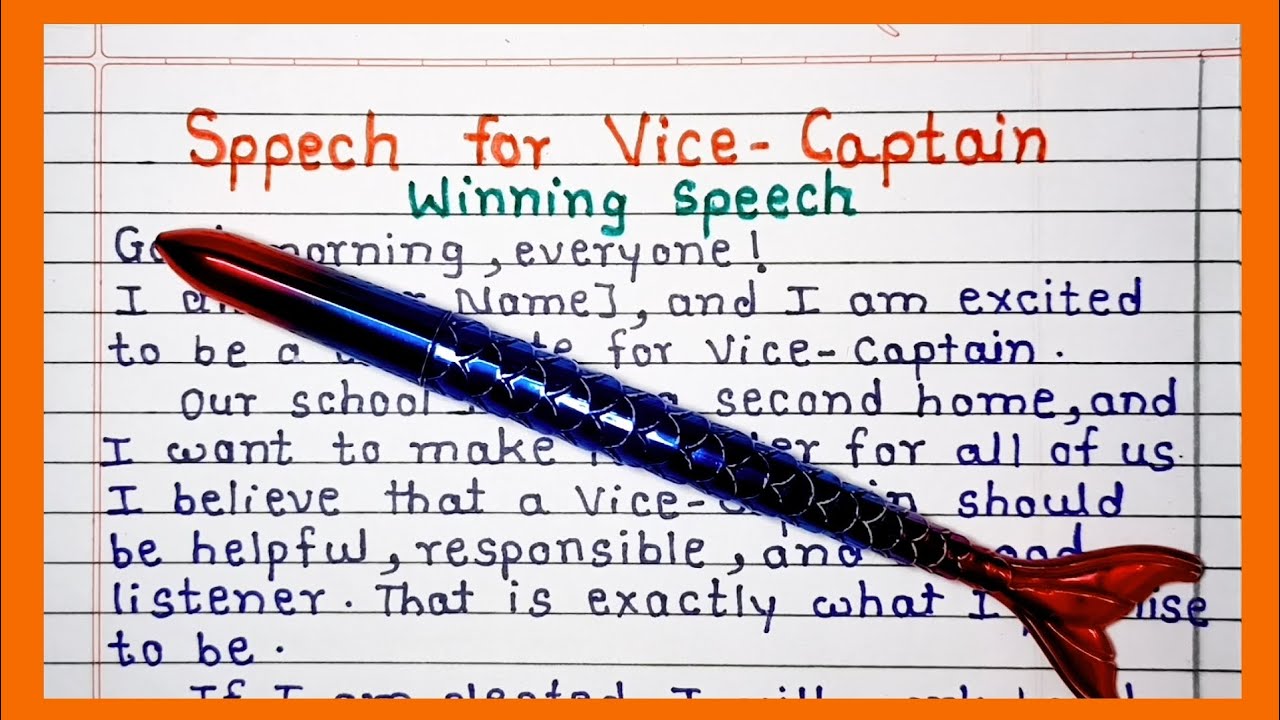 Sppech for Vice-Captain
Winning speech
morning, everyone!
I Name], and I am excited
to be a for Vice-Captain.
Our school second home, and
I want to make for all of us.
I believe that a Vice- should
be helpful, responsible, and
listener. That is exactly what I
to be.
If I am elected, I will work hard